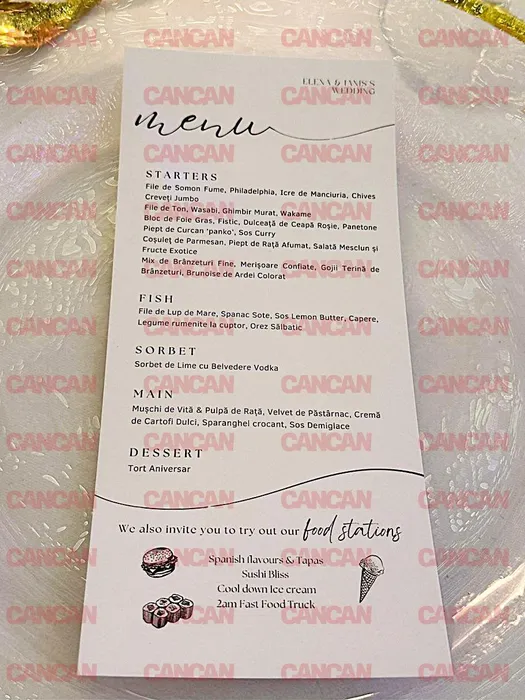 ELENA & IANIS'S
WEDDING
menu
STARTERS
File de Somon Fume, Philadelphia, Icre de Manciuria, Chives
Creveți Jumbo
File de Ton, Wasabi, Ghimbir Murat, Wakame
Bloc de Foie Gras, Fistic, Dulceață de Ceapă Roșie, Panetone
Piept de Curcan 'panko', Sos Curry
Coșuleț de Parmesan, Piept de Rață Afumat, Salată Mesclun și
Fructe Exotice
Mix de Brânzeturi Fine, Merișoare Confiate, Gojii Terină de
Brânzeturi, Brunoise de Ardei Colorat
FISH
File de Lup de Mare, Spanac Sote, Sos Lemon Butter, Capere,
Legume rumenite la cuptor, Orez Sălbatic
SORBET
Sorbet de Lime cu Belvedere Vodka
MAIN
Mușchi de Vită & Pulpă de Rață, Velvet de Păstârnac, Cremă
de Cartofi Dulci, Sparanghel crocant, Sos Demiglace
DESSERT
Tort Aniversar
We also invite you to try out our food stations
Spanish flavours & Tapas
Sushi Bliss
Cool down Ice cream
2am Fast Food Truck
CANCAN